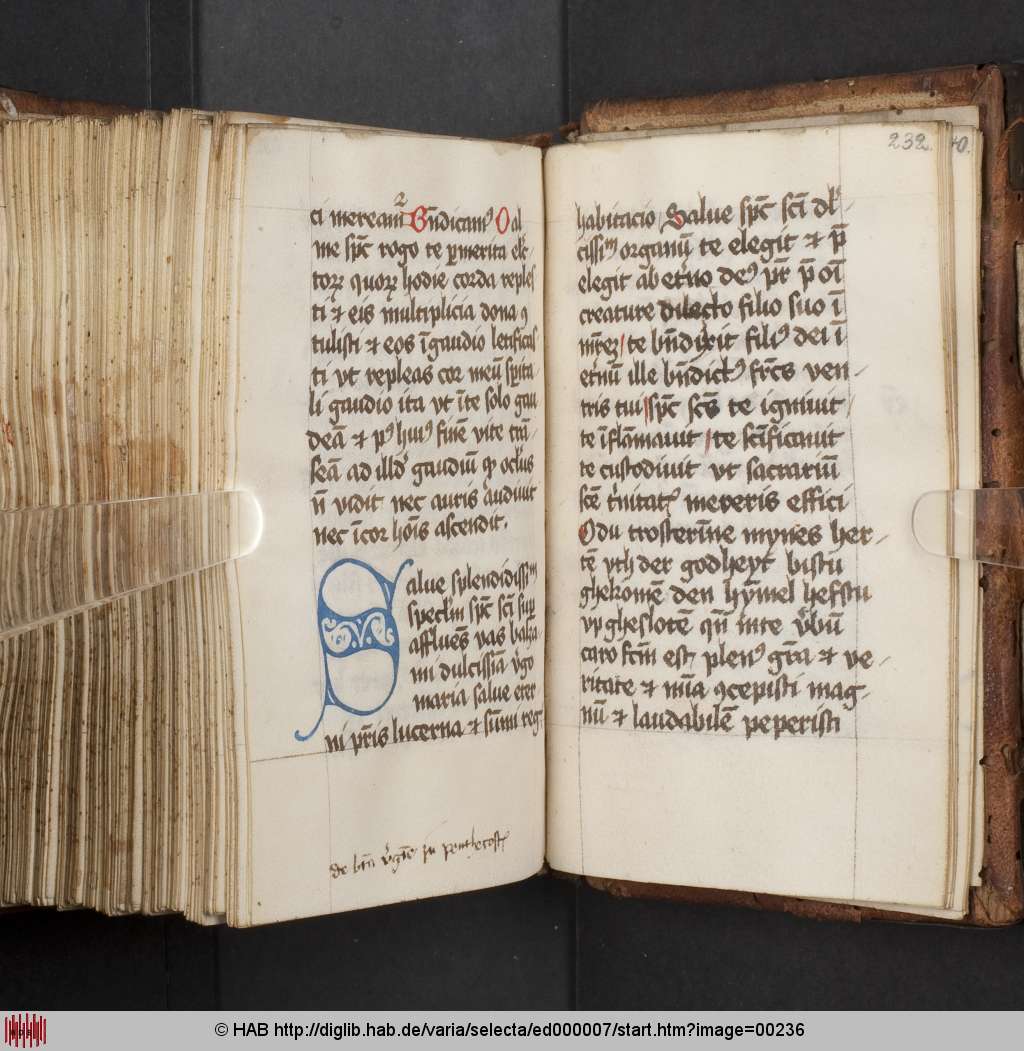 ci meream᷑ Bn̄dicam⁹ O al
me sp̄c rogo te ꝑ merita elc̄
torꝝ quorꝝ hodie corda reples
ti ⁊ eis multiplicia dona ꝯ
tulisti ⁊ eos ī gaudio letificas
ti vt repleas cor meū sp̄ita
li gaudio ita vt ī te solo gau
deā ⁊ p⁹ hui⁹ finē vite trā-
seā ad illd̄ gaudiū qd̄ ocl̄us
n̄ vidit nec auris audiuit
nec ī cor hoīs ascendit.
Salue splendidissim̄
specl̄m sp̄c sc̄i suꝑ
affluēs vas balsa-
mi dulcissīa v̄go
maria salue eter
ni pr̄is lucerna ⁊ sūmi reg
de btā v̄gīe in penthecost̄
232.
habitacio Salue sp̄c sc̄i dl̄
cissim̄ organū te elegit ⁊ p̄
elegit ab et̄no de⁹ pr̄ p̄ oī
creature dilecto filio suo ī
mr̄eꝫ te bn̄dixit fili⁹ dei ī
et̄nū ille bn̄dict⁹ fr̄cs ven-
tris tui sp̄c sc̄s te igniuit
te īflāmauit te sc̄ificauit
te custodiuit vt sacrariū
sc̄e t̄nitat᷒ mereris effici
O du trosterīne mynes her-
tē vth der godheyt bistu
ghekomē den hȳmel hefstu
vpgheslotē qn̄ in te v̄bū
caro fc̄m est plen⁹ gr̄a ⁊ ve-
ritate ⁊ nūa ꝯcepisti mag-
nū ⁊ laudabilē peperisti
© HAB http://diglib.hab.de/varia/selecta/ed000007/start.htm?image=00236